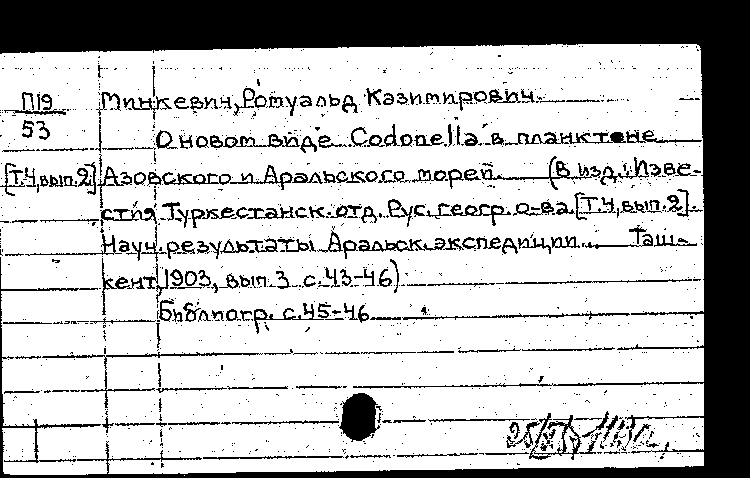 П19 Минкевич, Ромуальд Казимирович.
53 О новом виде Codonella в планктоне
[Т.4, вып.2] Азовского и Аральского морей. (В изд.: Изве-
стия Туркестанск. отд. Рус. геогр. о-ва. [Т.4, вып.2].
Науч. результаты Аральск. экспедиции... Таш-
кент, 1903, вып. 3 с. 43-46)
Библиогр. с. 45-46